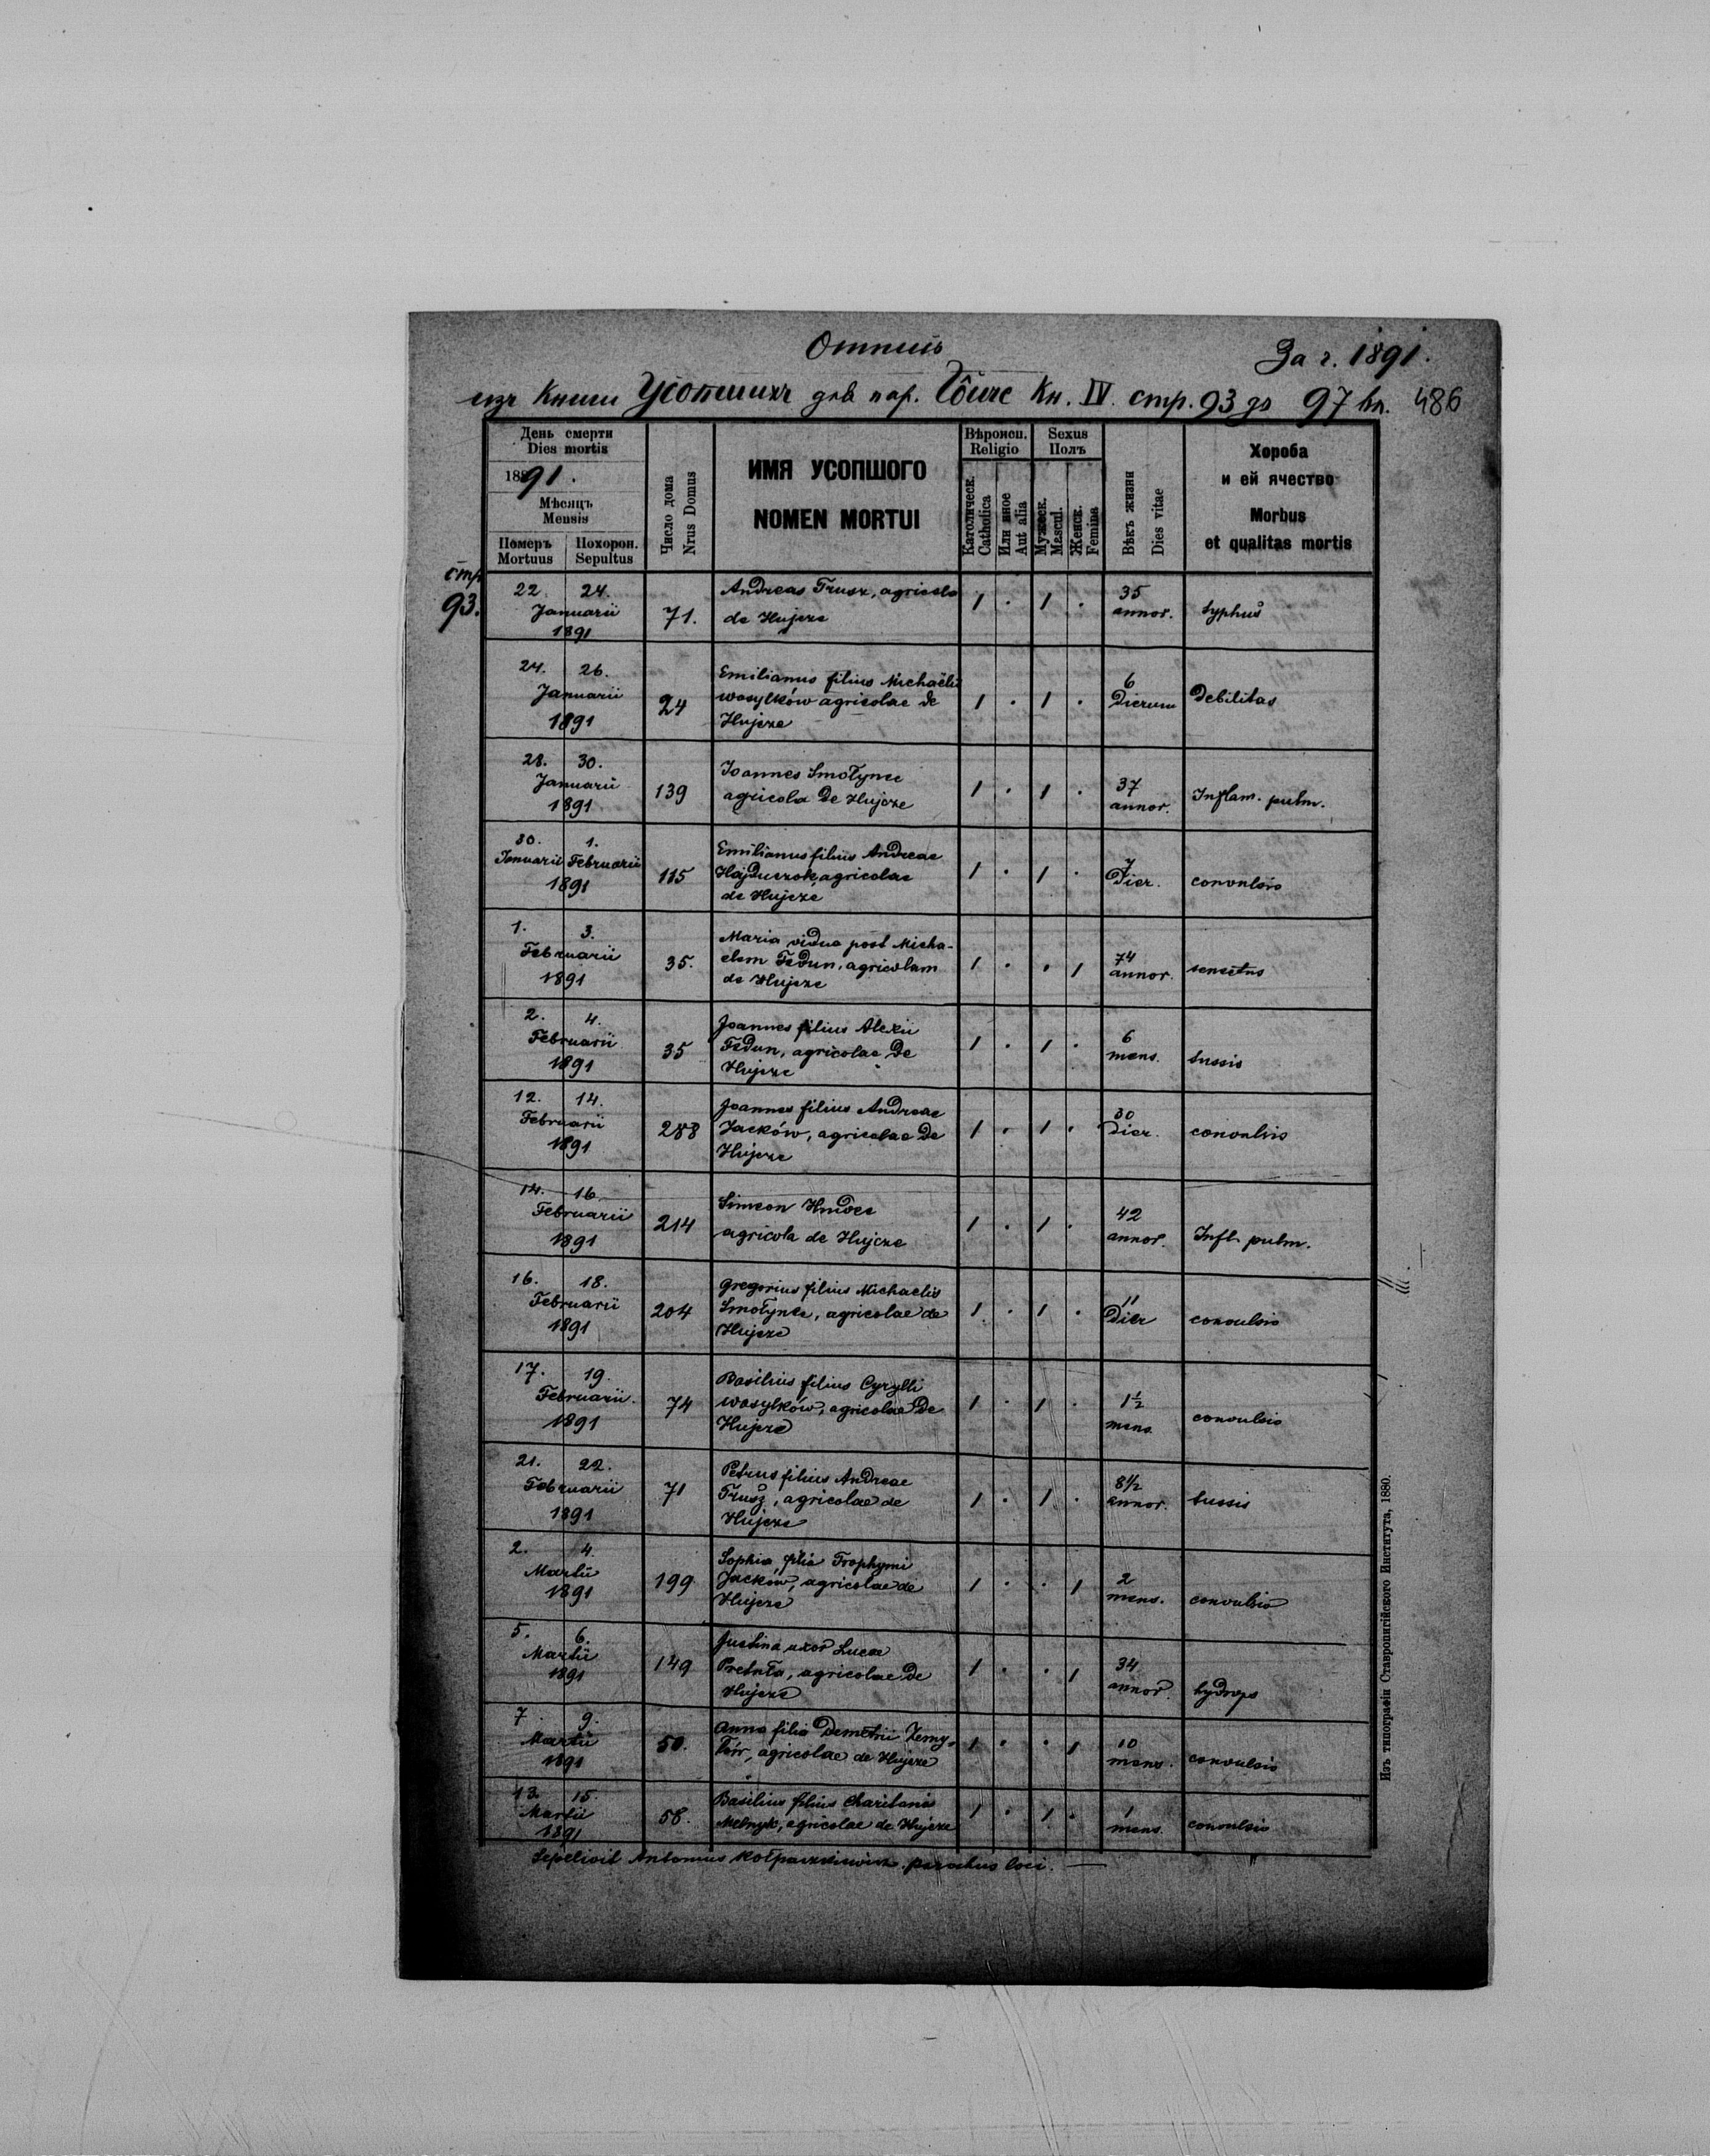 Отпись
За г. 1891.
изъ Книги Усопшихъ для пар. Гôйче Кн. IV. стр. 93 до 97 вкл. 486
День смерти
Dies mortis
1891.
Мѣсяцъ
Mensis
Померъ Похорон.
Mortuus Sepultus
Число дома
Nrus Domus
ИМЯ УСОПШОГО
NOMEN MORTUI
Вѣроисп.
Religio
Католическ.
Catholica
Или иное
Aut alia
Sexus
Полъ
Мужеск.
Mascul.
Женск.
Femina
Вѣкъ жизни
Dies vitae
Хороба
и ей ячество
Morbus
et qualitas mortis
стр
93.
22. 24.
Januarii
1891
71.
Andreas Trusz, agricola
de Hujcze
1 . 1 .
35
annor.
typhus
24. 26.
Januarii
1891
24
Emilianus filius Michaëlis
Wasylków agricolae de
Hujcze
1 . 1 .
6
Dierum
Debilitas
28. 30.
Januarii
1891
139
Joannes Smołynec
agricola de Hujcze
1 . 1 .
37
annor.
Inflam. pulm.
30. 1.
Januarii Februarii
1891
115
Emilianus filius Andreae
Hajduczok, agricolae
de Hujcze
1 . 1 .
7
Dier.
convulsio
1. 3.
Februarii
1891
35.
Maria vidua post Micha-
elem Fedun, agricolam
de Hujcze
1 . . 1
74
annor.
senectus
2. 4.
Februarii
1891
35
Joannes filius Alexii
Fedun, agricolae de
Hujcze
1 . 1 .
6
mens.
tussis
12. 14.
Februarii
1891
288
Joannes filius Andreae
Jacków, agricolae de
Hujcze
1 . 1 .
30
Dier.
convulsio
14. 16.
Februarii
1891
214
Simeon
agricola de Hujcze
1 . 1 .
42
annor.
Infl. pulm.
16. 18.
Februarii
1891
204
Gregorius filius Michaelis
Smołynec, agricolae de
Hujcze
1 . 1 .
11
Dier
convulsio
17. 19.
Februarii.
1891
74
Basilius filius Cyrylli
Wasylków, agricolae de
Hujcze
1 . 1 .
1½
mens.
convulsio
21. 22.
Februarii
1891
71
Petrus filius Andreae
Trusz, agricolae de
Hujcze
1 . 1 .
8½
annor.
tussis
2. 4.
Martii
1891
199
Sophia filia Trophymi
Jacków, agricolae de
Hujcze
1 . . 1
2
mens.
convulsio
5. 6.
Martii
1891
149
Justina uxor Lucae
agricolae de
Hujcze
1 . . 1
34
annor.
hydrops
7. 9.
Martii
1891
50.
Anna filia Demetrii
agricolae de Hujcze
1 . . 1
10
mens.
convulsio
13. 15.
Martii
1891
58.
Basilius filius Charitonis
Melnyk, agricolae de Hujcze
1 . 1 .
1
mens.
convulsio
Sepelivit Antonius parochus loci.
Изъ типографіи Ставропигійского Института, 1880.